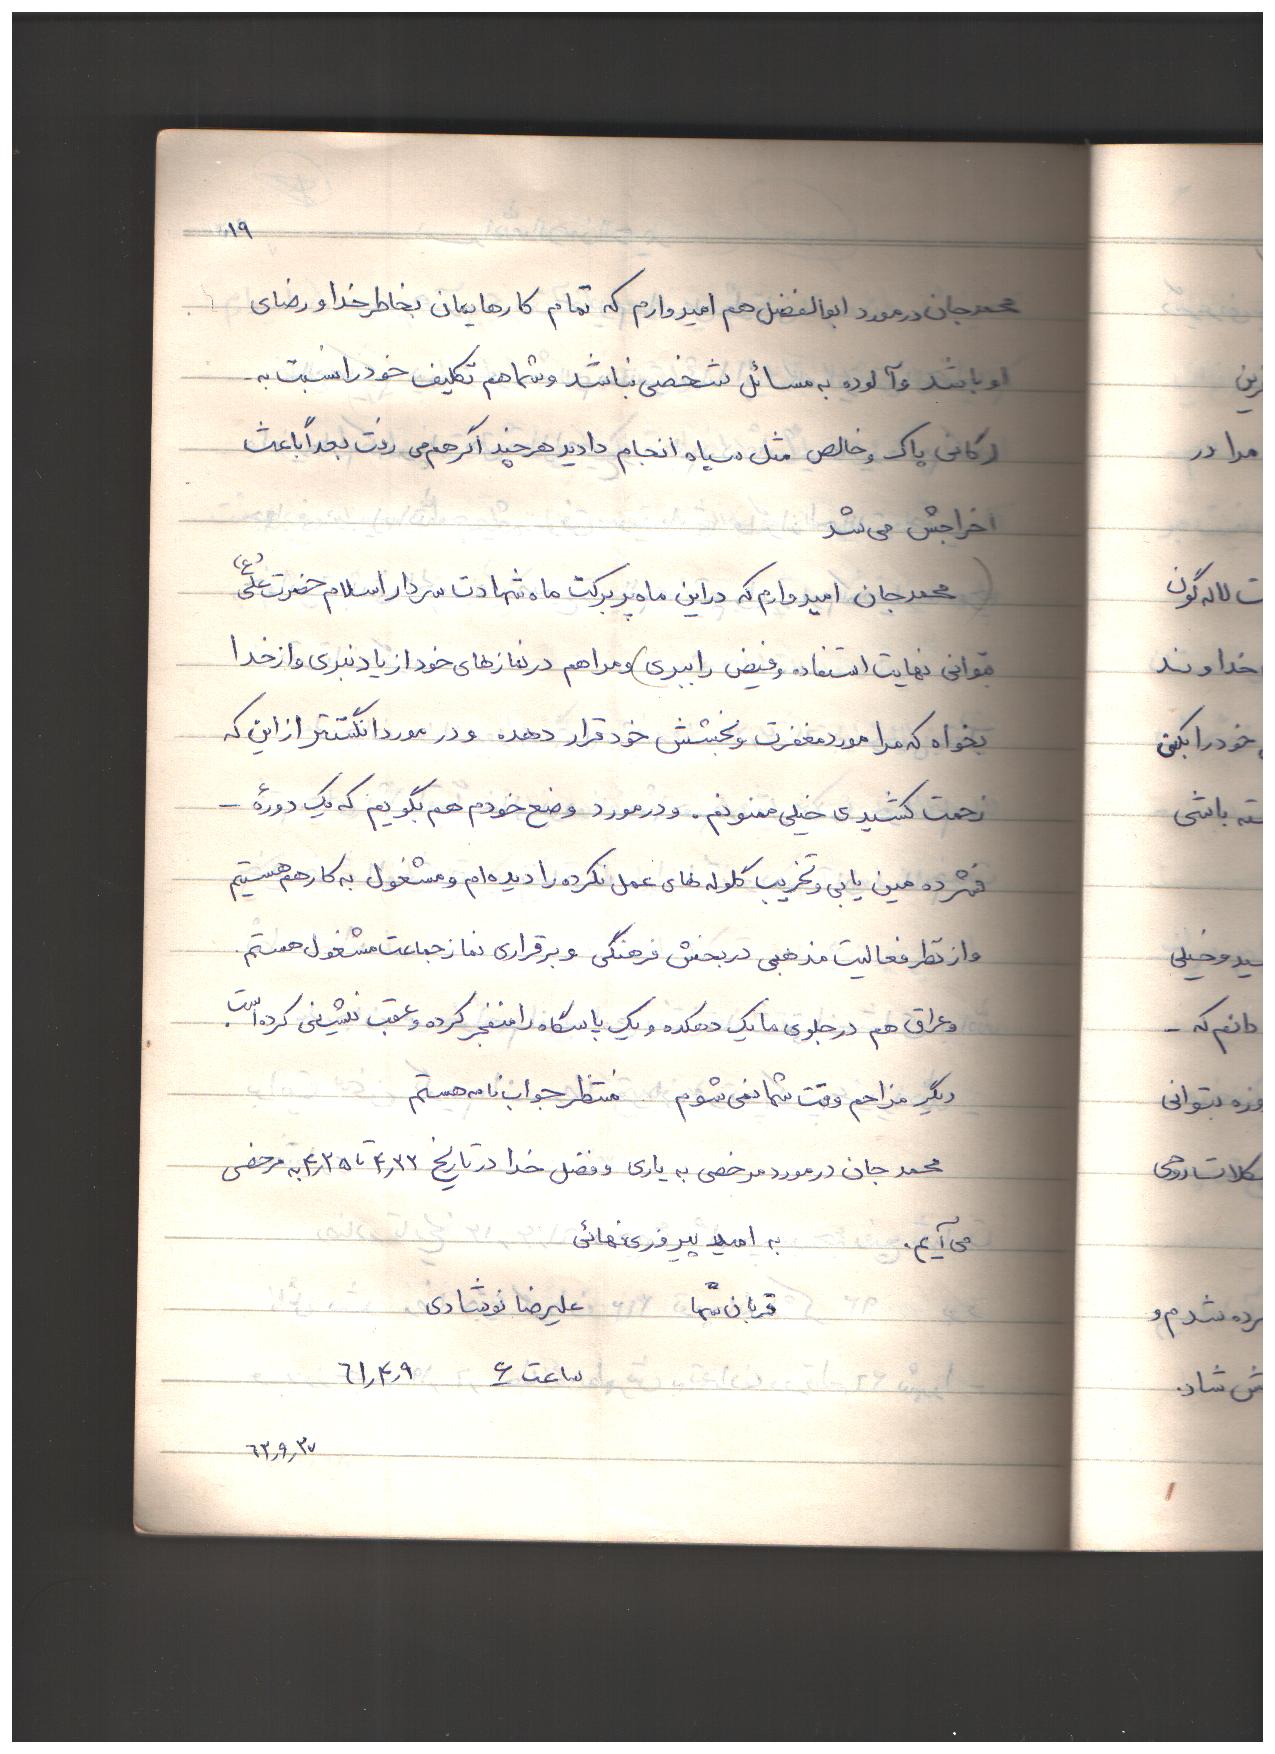 ۱۹
محمد جان در مورد ابوالفضل هم امیدوارم که تمام کارهایمان بخاطر خدا و رضای
او باشد و آلوده به مسائل شخصی نباشد و شما هم تکلیف خود را نسبت به -
ارگانی پاک و خالص مثل سپاه انجام دادید هر چند اگر هم می رفت بعداً باعث
اخراجش می شد
(محمد جان امیدوارم که در این ماه پر برکت ماه شهادت سردار اسلام حضرت علی (ع)
بتوانی نهایت استفاده و فیض را ببری) و مرا هم در نمازهای خود از یاد نبری و از خدا
بخواه که مرا مورد مغفرت و بخشش خود قرار دهد و در مورد انگشتر از این که
زحمت کشیدی خیلی ممنونم. و در مورد وضع خودم هم بگویم که یک دورهٔ -
فشرده مین یابی و تخریب گلوله های عمل نکرده را دیده ام و مشغول به کار هم هستیم
و از نظر فعالیت مذهبی در بخش فرهنگی و برقراری نماز جماعت مشغول هستم.
و عراق هم در جلوی ما یک دهکده و یک پاسگاه را منفجر کرده و عقب نشینی کرده است.
دیگر مزاحم وقت شما نمی شوم منتظر جواب نامه هستم
محمد جان در مورد مرخصی به یاری و فضل خدا در تاریخ ۴٫۲۲ تا ۴٫۲۵ به مرخصی
می آیم. به امید پیروزی نهائی
قربان شما علیرضا نوشادی
ساعت ۶ ۶۱٫۴٫۹
۶۲٫۹٫۲۷
زین
مرا در
ت لاله گون
خداوند
خود را بکنی
سته باشی
خیلی
دانم که -
بتوانی
کلات روحی
رده شدم و
ش شاد.